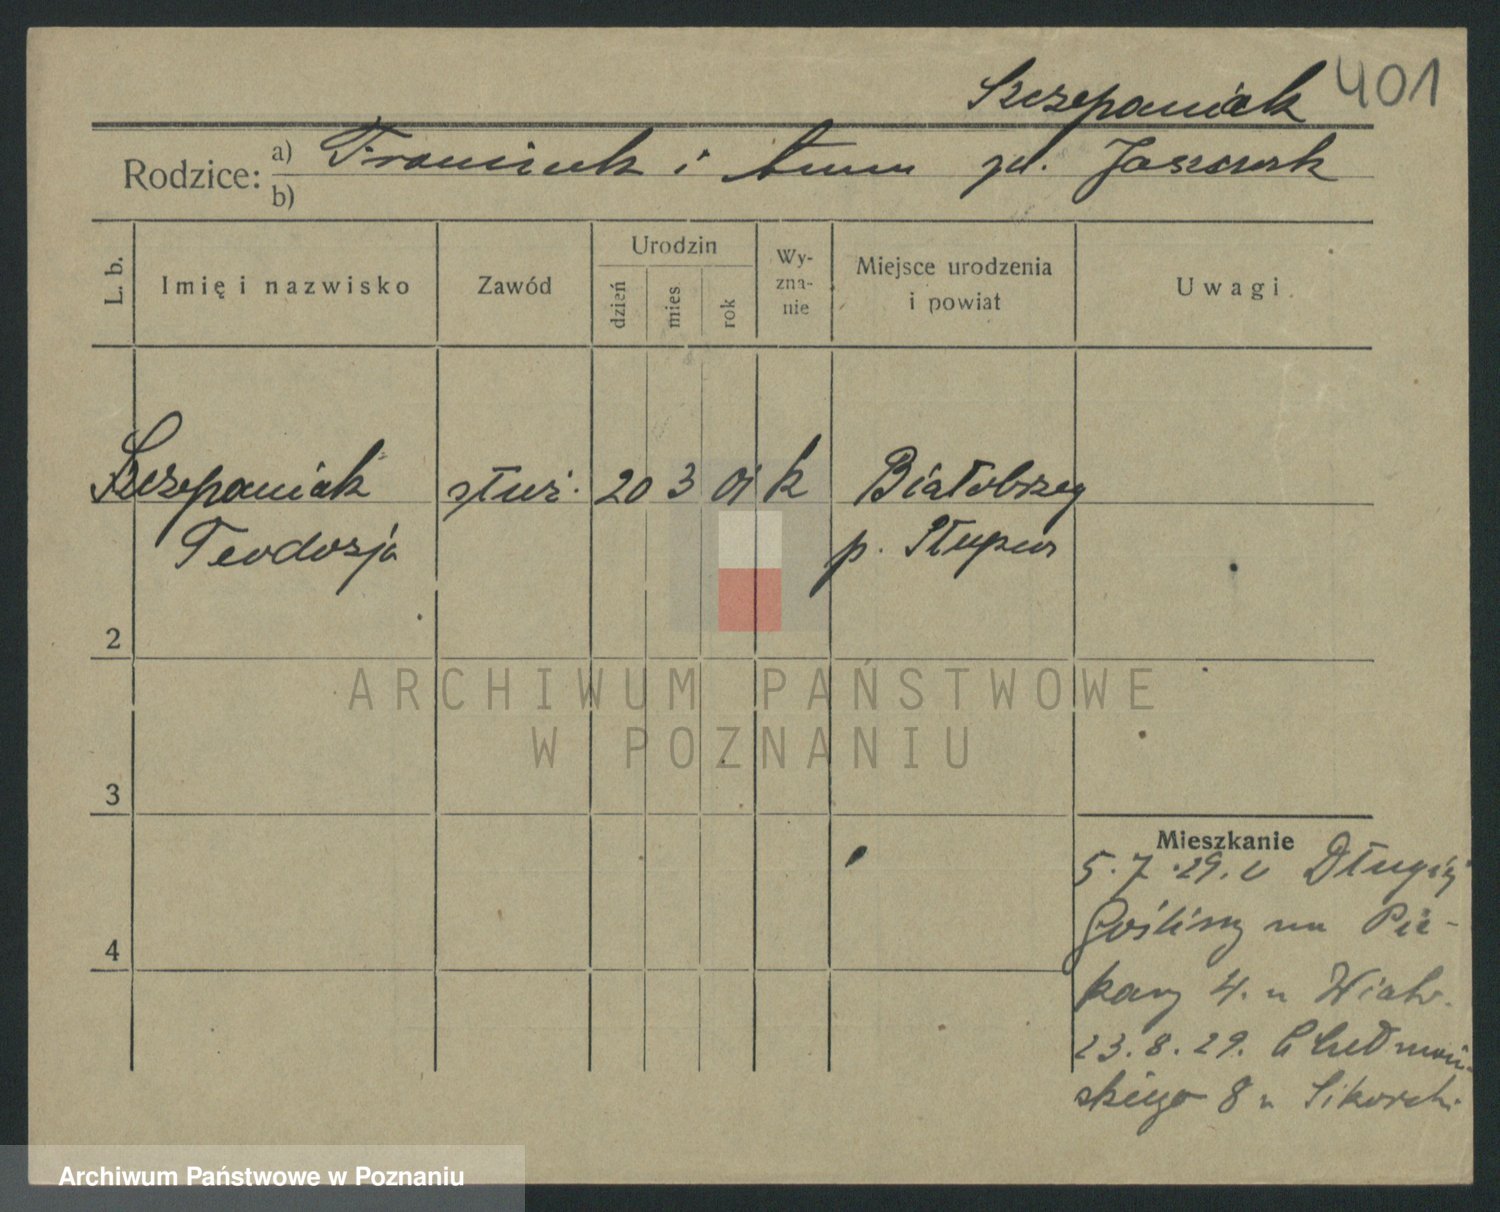 Szczepaniak 401
Rodzice: a) Franciszek i Anna zd.
b)
L. b.
Imię i nazwisko
Zawód
Urodzin
dzień
mies
rok
Wy-
zna-
nie
Miejsce urodzenia
i powiat
Uwagi
Szczepaniak służ. 20 3 01 k Białobrzeg
Teodozja p. Słupca
2
ARCHIWUM PAŃSTWOWE
W POZNANIU
3
Mieszkanie
5.7.29. Długiej
Gośliny na Pie-
kary 4. u
23.8.29. Chełmoń-
skiego 8 u Sikorski
4
Archiwum Państwowe w Poznaniu